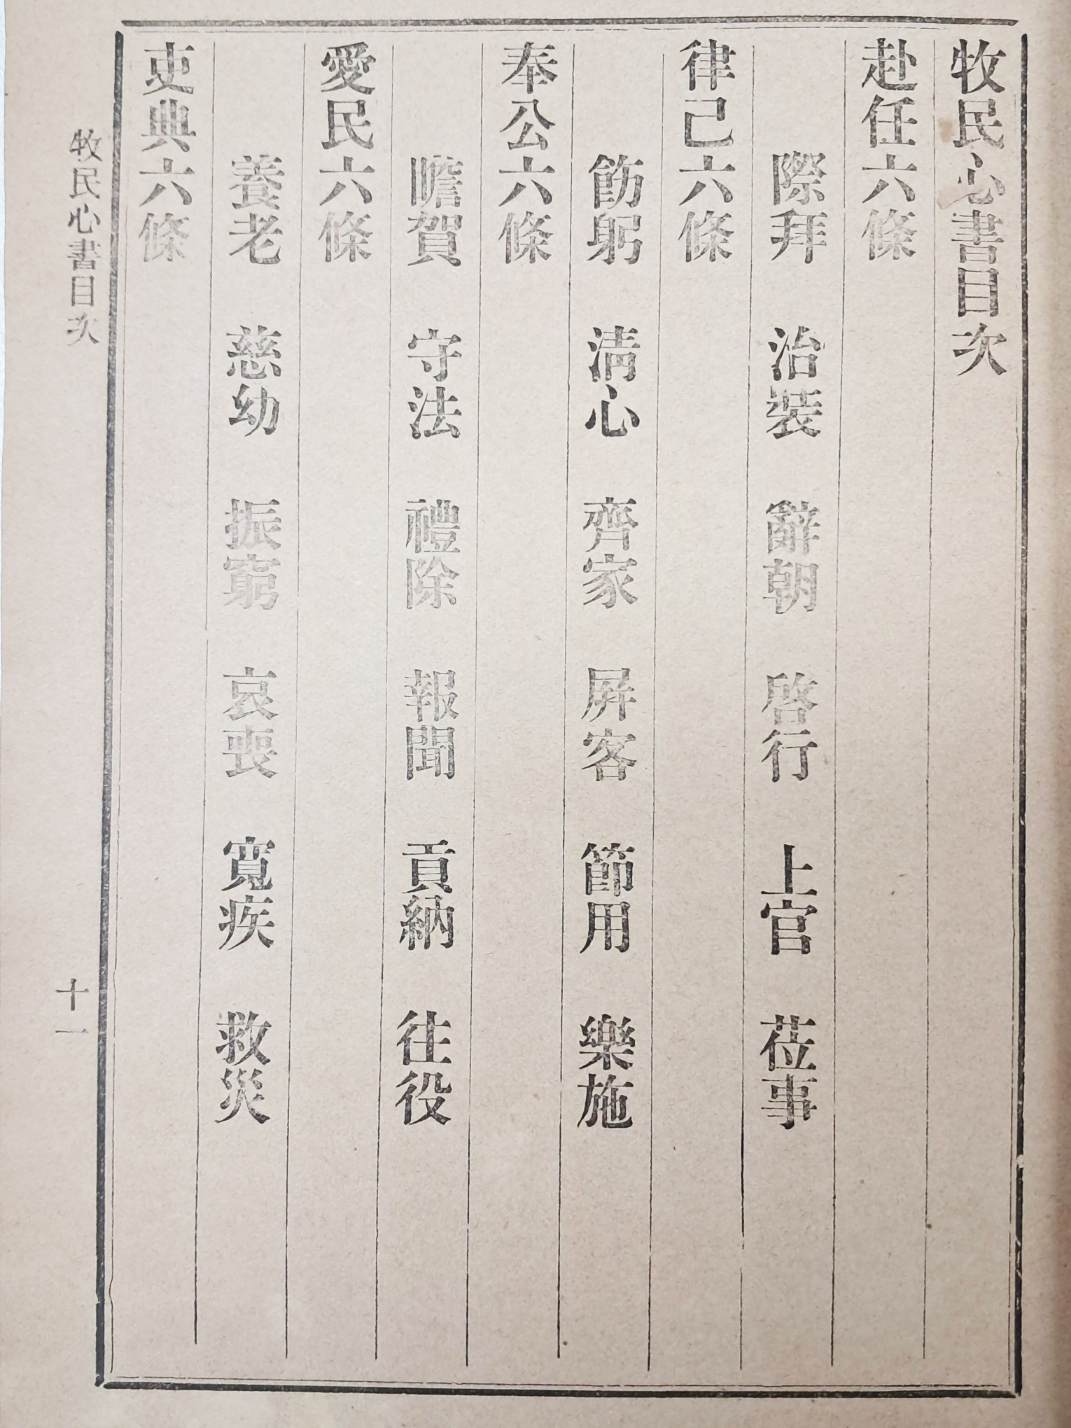 牧民心書目次
赴任六條
際拜 治裝 辭朝 啓行 上官 莅事
律己六條
飭躬 淸心 齊家 屛客 節用 樂施
奉公六條
瞻賀 守法 禮除 報聞 貢納 往役
愛民六條
養老 慈幼 振窮 哀喪 寬疾 救災
吏典六條
牧民心書目次 十一